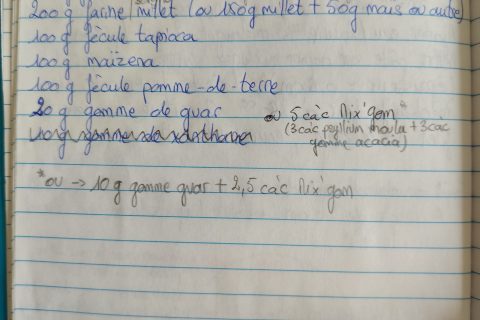 200g farine millet (ou 150g millet + 50g maïs ou autre)
100g fécule tapioca
100g maïzena
100g fécule pomme-de-terre
20g gomme de guar ou 5 càc Mix'gom*
10g gomme de xanthane (3càc psyllium moulu + 3càc
gomme acacia)
*ou → 10g gomme guar + 2,5 càc Mix'gom